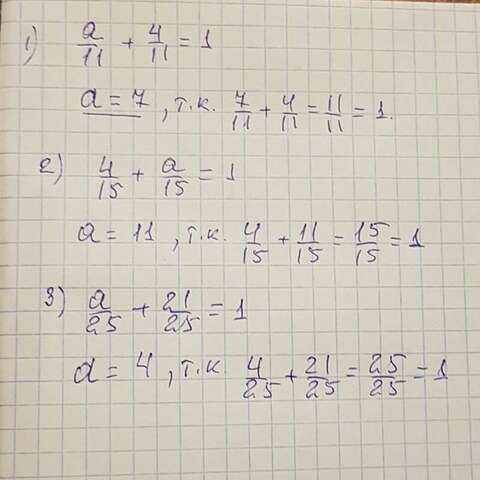 1) a/11 + 4/11 = 1
a = 7, т.к. 7/11 + 4/11 = 11/11 = 1.
2) 4/15 + a/15 = 1
a = 11, т.к. 4/15 + 11/15 = 15/15 = 1
3) a/25 + 21/25 = 1
a = 4, т.к. 4/25 + 21/25 = 25/25 = 1